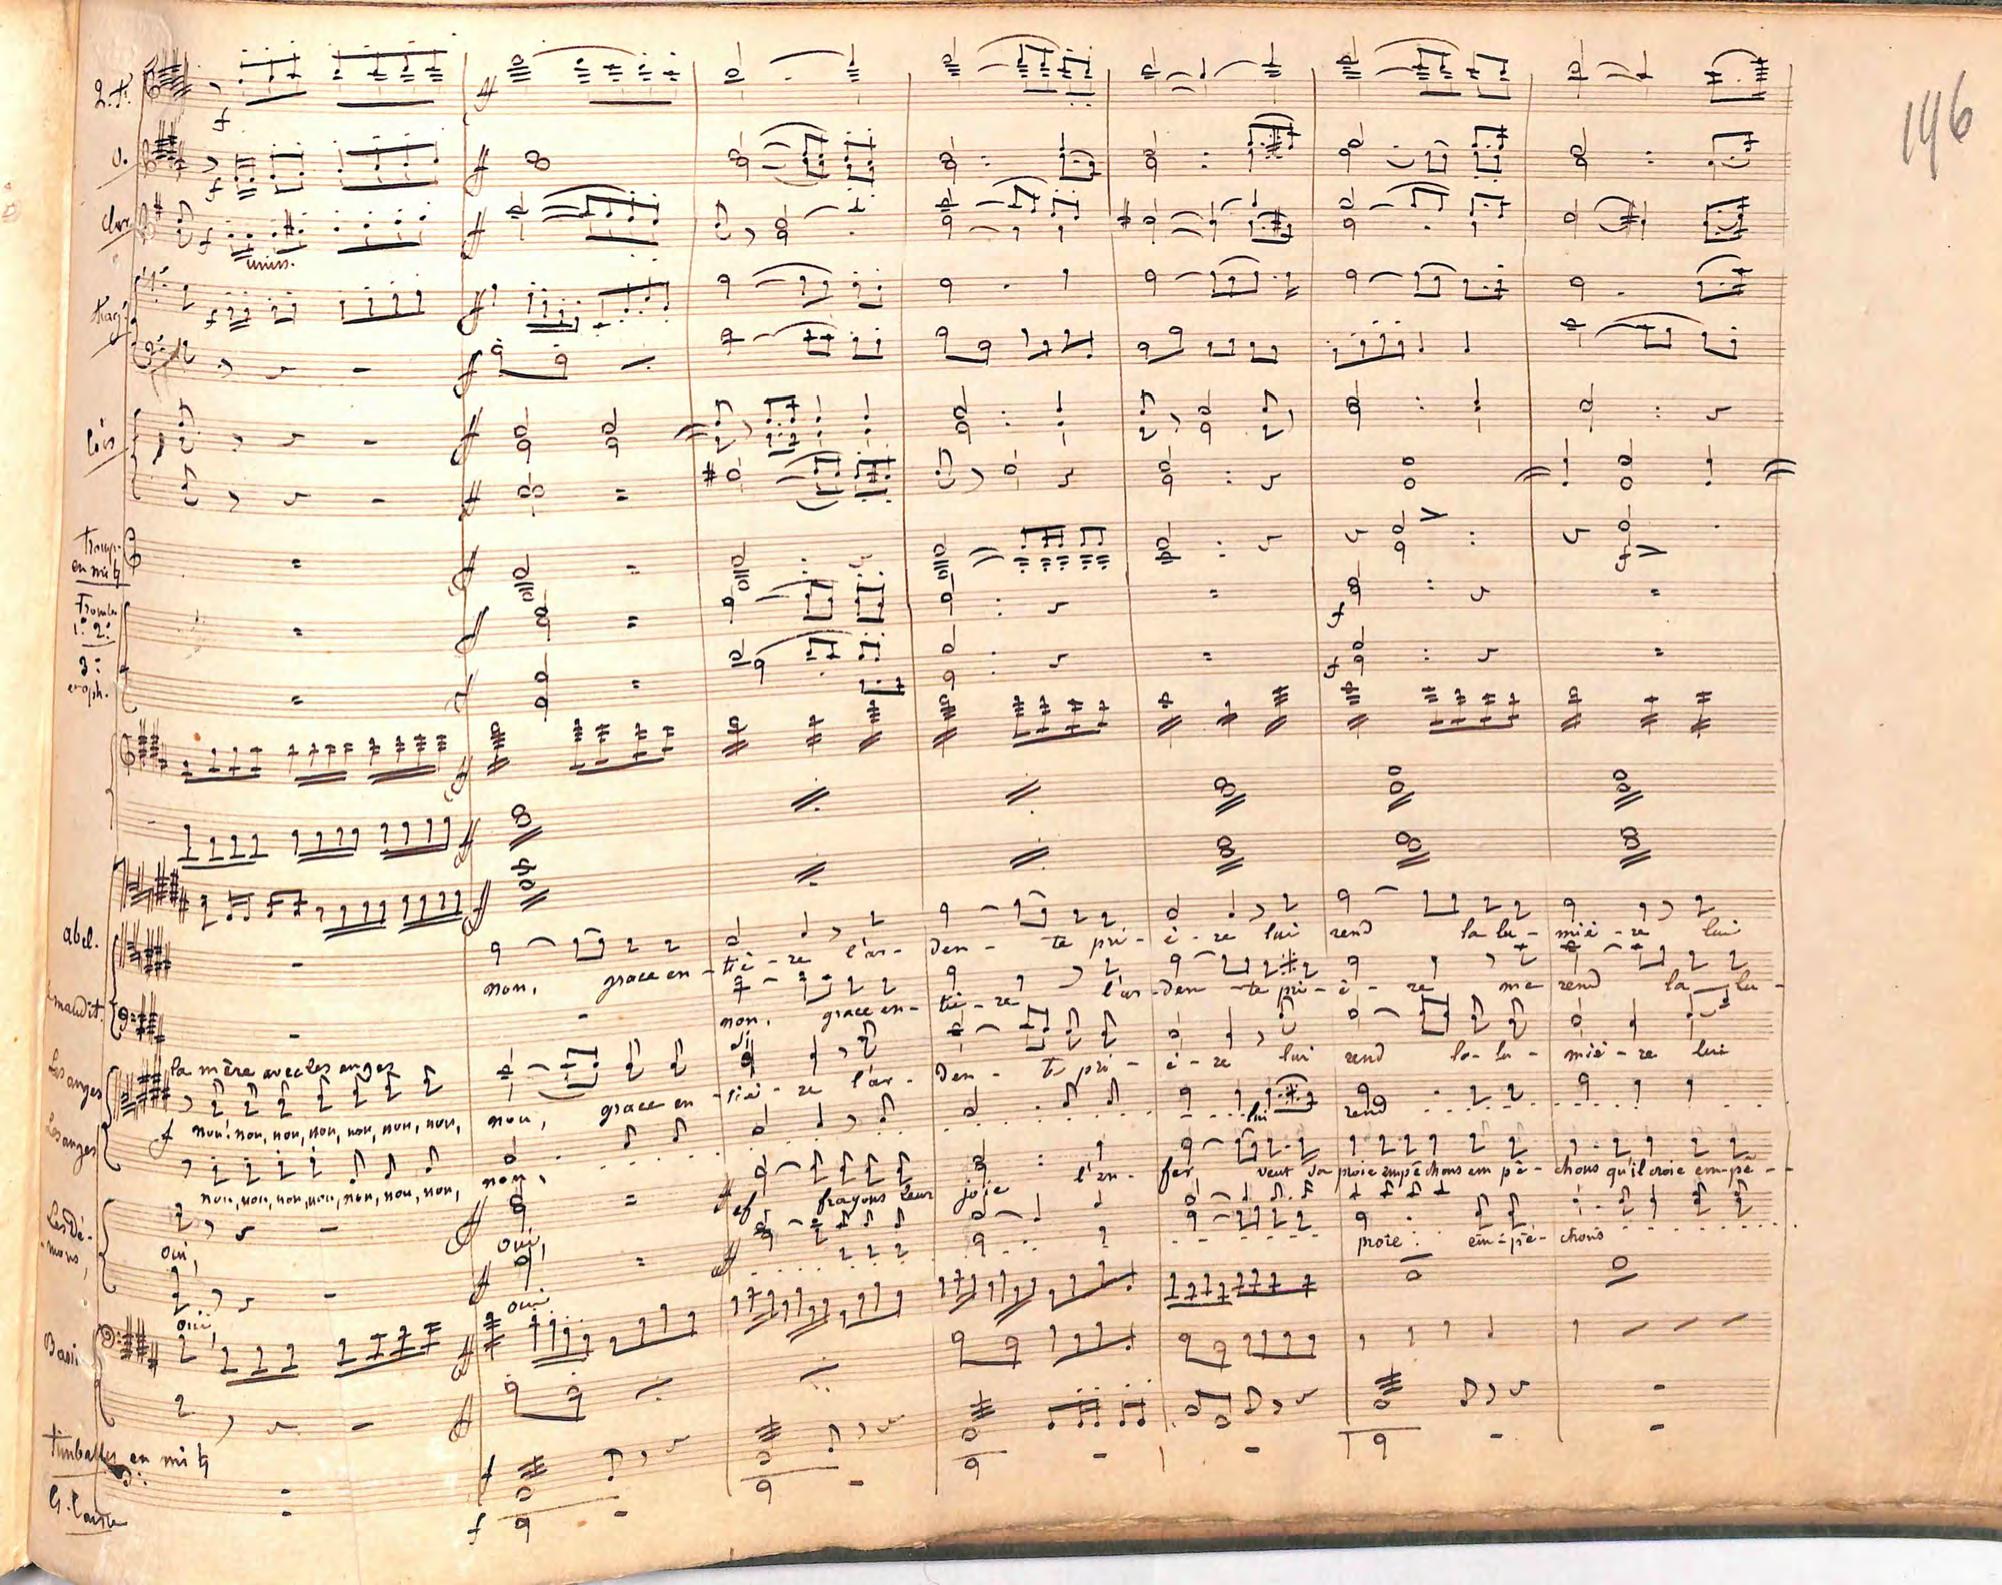 196
2. f.
f
o.
f
Clar.
f
uniss.
f
f
Cors
Tromp.
en mi ♮
Tromb.
1: 2:
3:
f
f
f
abel.
non, grace en-tiè-re l'ar-den-te pri-è-re lui rend la lu-miè-re lui
maudit.
non, grace en-tiè-re l'ar-den-te pri-è-re me rend la lu-
Les anges
la mère avec les anges
f non! non, non, non, non, non, non, non, grace en-tiè-re l'ar-den-te pri-è-re lui rend la lu-miè-re lui
Les anges
lui rend
non, non, non, non, non, non, non, non,
Les Dé-
mons,
oui, oui, ef-frayons leur joie l'en-fer veut sa proie empêchons em pê-chons qu'il croie em-pê-
proie: em-pê-chons
oui oui
timballes en mi ♮
f
G. Caisse
f